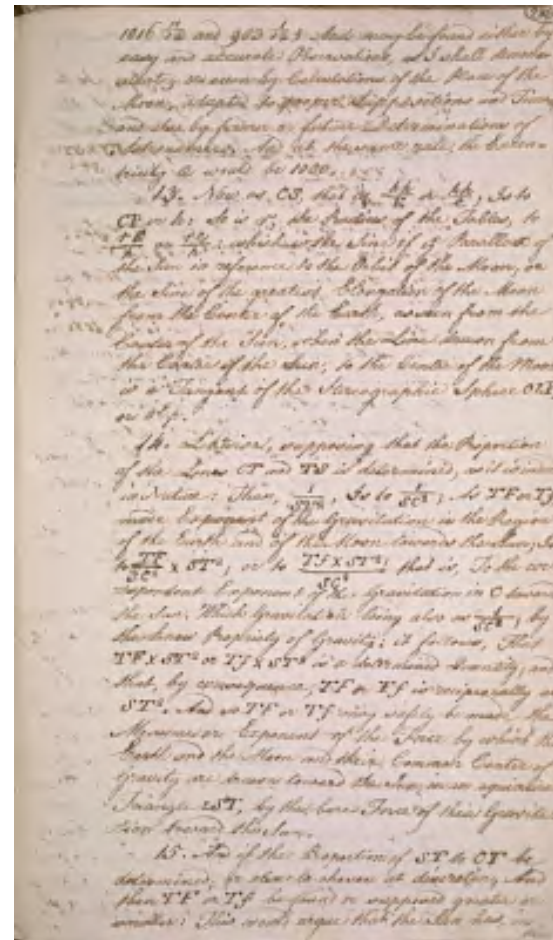 1016 and 903 And may be found either by
easy and accurate Observations, as I shall
or even by Calculations of the Place of the
Moon, adapted to proper Suppositions and Times
and also by former or future Determinations of
Astronomers. And at the same rate, the Eccen-
tricity would be 1000.
13. Now as CS, that is, or, Is to
CP or h: So is r, the Radius of the Tables, to
or: which is the Sine of a Parallax of
the Sun in reference to the Orbit of the Moon, or
the Sine of the greatest Elongation of the Moon
from the Center of the Earth, as seen from the
Center of the Sun, when the Line drawn from
the Center of the Sun, to the Center of the Moon
is a Tangent of the Stereographic Sphere
or
14. Likewise, supposing that the Proportion
of the Lines CT and TS is determined, as it is
in Nature: Then, 1/ST², Is to 1/SC²; As TF or Tf
made Exponent of the Gravitation in the Region
of the Earth and of the Moon towards the Sun, Is
to TF/SC² x ST², or to Tf x ST²/SC²; that is, To the
Exponent of the Gravitation in C toward
the Sun. Which Gravitation being also as 1/SC², by
the known Property of Gravity; it follows, That
TF x ST² or Tf x ST² is a determined Quantity, and
that, by consequence, TF or Tf is reciprocally as
ST². And so TF or Tf may safely be made the
Measure or Exponent of the Force by which the
Earth and the Moon and their Common Center of
Gravity are toward the Sun, in an
Triangle ST, by the bare Force of their Gravita-
tion toward the Sun.
15. And if the Proportion of ST to CT be
determined, or else be chosen at discretion, And
then TF or Tf be found or supposed greater or
smaller: This would argue that the Sun has, in